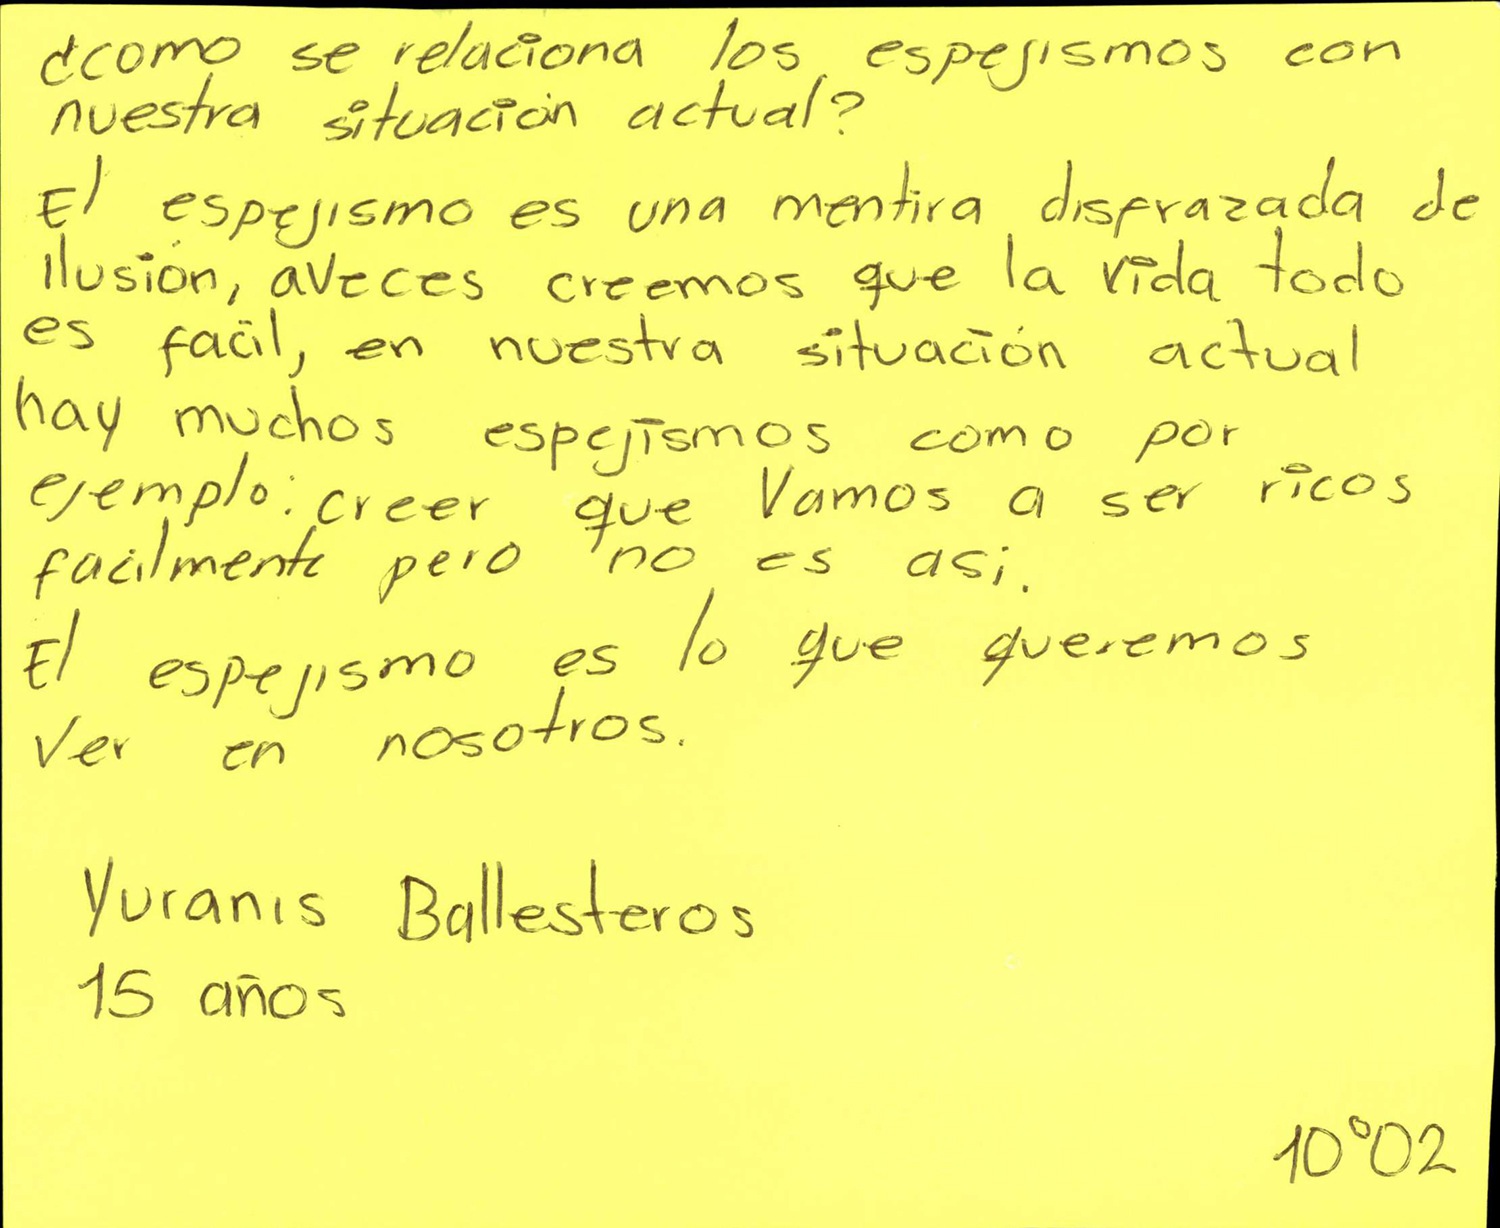 ¿como se relaciona los espejismos con
nuestra situación actual?
El espejismo es una mentira disfrazada de
ilusión, aveces creemos que la vida todo
es facil, en nuestra situación actual
hay muchos espejismos como por
ejemplo: creer que Vamos a ser ricos
facilmente pero no es asi.
El espejismo es lo que queremos
Ver en nosotros.
Yuranis Ballesteros
15 años
10°02